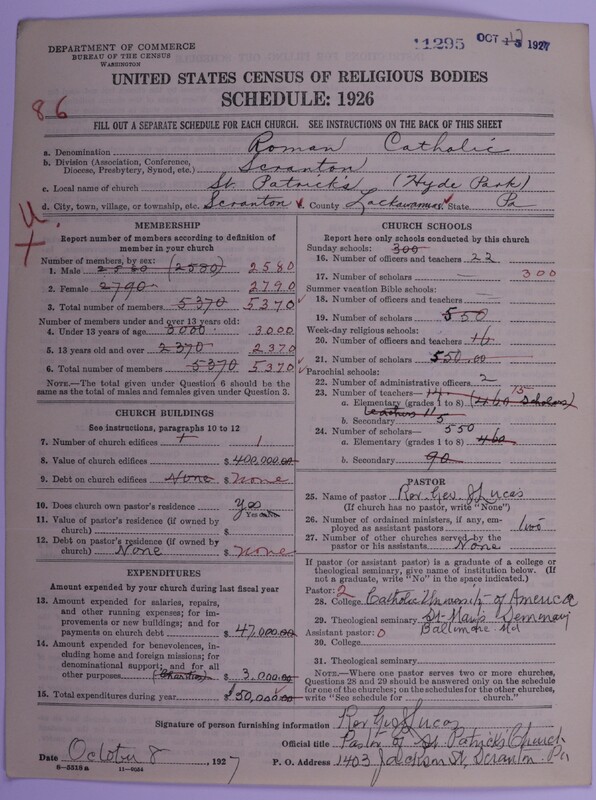 DEPARTMENT OF COMMERCE
BUREAU OF THE CENSUS
WASHINGTON
11295 OCT 1927
UNITED STATES CENSUS OF RELIGIOUS BODIES
SCHEDULE: 1926
86
FILL OUT A SEPARATE SCHEDULE FOR EACH CHURCH. SEE INSTRUCTIONS ON THE BACK OF THIS SHEET
a. Denomination Roman Catholic
b. Division (Association, Conference, Diocese, Presbytery, Synod, etc.) Scranton
c. Local name of church St. Patrick's (Hyde Park)
d. City, town, village, or township, etc. Scranton County Lackawanna State Pa
MEMBERSHIP
Report number of members according to definition of
member in your church
Number of members, by sex:
1. Male 2580 (2580) 2580
2. Female 2790 2790
3. Total number of members 5370 5370
Number of members under and over 13 years old:
4. Under 13 years of age 3000 3000
5. 13 years old and over 2370 2370
6. Total number of members 5370 5370
NOTE.—The total given under Question 6 should be
the same as the total of males and females given under Question 3.
CHURCH BUILDINGS
See instructions, paragraphs 10 to 12
7. Number of church edifices 1
8. Value of church edifices $400,000.00
9. Debt on church edifices None $ none
10. Does church own pastor's residence? Yes
Yes or No
11. Value of pastor's residence (if owned by
church) $
12. Debt on pastor's residence (if owned by
church) None $ none
EXPENDITURES
Amount expended by your church during last fiscal year
13. Amount expended for salaries, repairs,
and other running expenses; for im-
provements or new buildings; and for
payments on church debt $ 47,000.00
14. Amount expended for benevolences,
including home and foreign missions; for
denominational support; and for all
other purposes (Charities) $ 3,000.00
15. Total expenditures during year $50,000.00
CHURCH SCHOOLS
Report here only schools conducted by this church
Sunday schools: 300
16. Number of officers and teachers 22
17. Number of scholars 300
Summer vacation Bible schools:
18. Number of officers and teachers
19. Number of scholars 550
Week-day religious schools:
20. Number of officers and teachers 16
21. Number of scholars 550.00
Parochial schools:
22. Number of administrative officers 2
23. Number of teachers— 14 15
a. Elementary (grades 1 to 8) (460 scholars)
teachers 11
b. Secondary 5
24. Number of scholars— 550
a. Elementary (grades 1 to 8) 460
b. Secondary 90
PASTOR
25. Name of pastor Rev. Geo. J Lucas
(If church has no pastor, write "None")
26. Number of ordained ministers, if any, em-
ployed as assistant pastors two
27. Number of other churches served by the
pastor or his assistants None
If pastor (or assistant pastor) is a graduate of a college or
theological seminary, give name of institution below. (If
not a graduate, write "No" in the space indicated.)
Pastor: 2
28. College Catholic University of America
29. Theological seminary St. Mary's Seminary
Baltimore Md
Assistant pastor: 0
30. College
31. Theological seminary
NOTE.—Where one pastor serves two or more churches,
Questions 28 and 29 should be answered only on the schedule
for one of the churches; on the schedules for the other churches,
write "See schedule for church."
Signature of person furnishing information Rev Geo J Lucas
Official title Pastor of St. Patrick's Church
Date October 8, 1927 P. O. Address 1403 Jackson St, Scranton Pa
8—5518a 11—9064